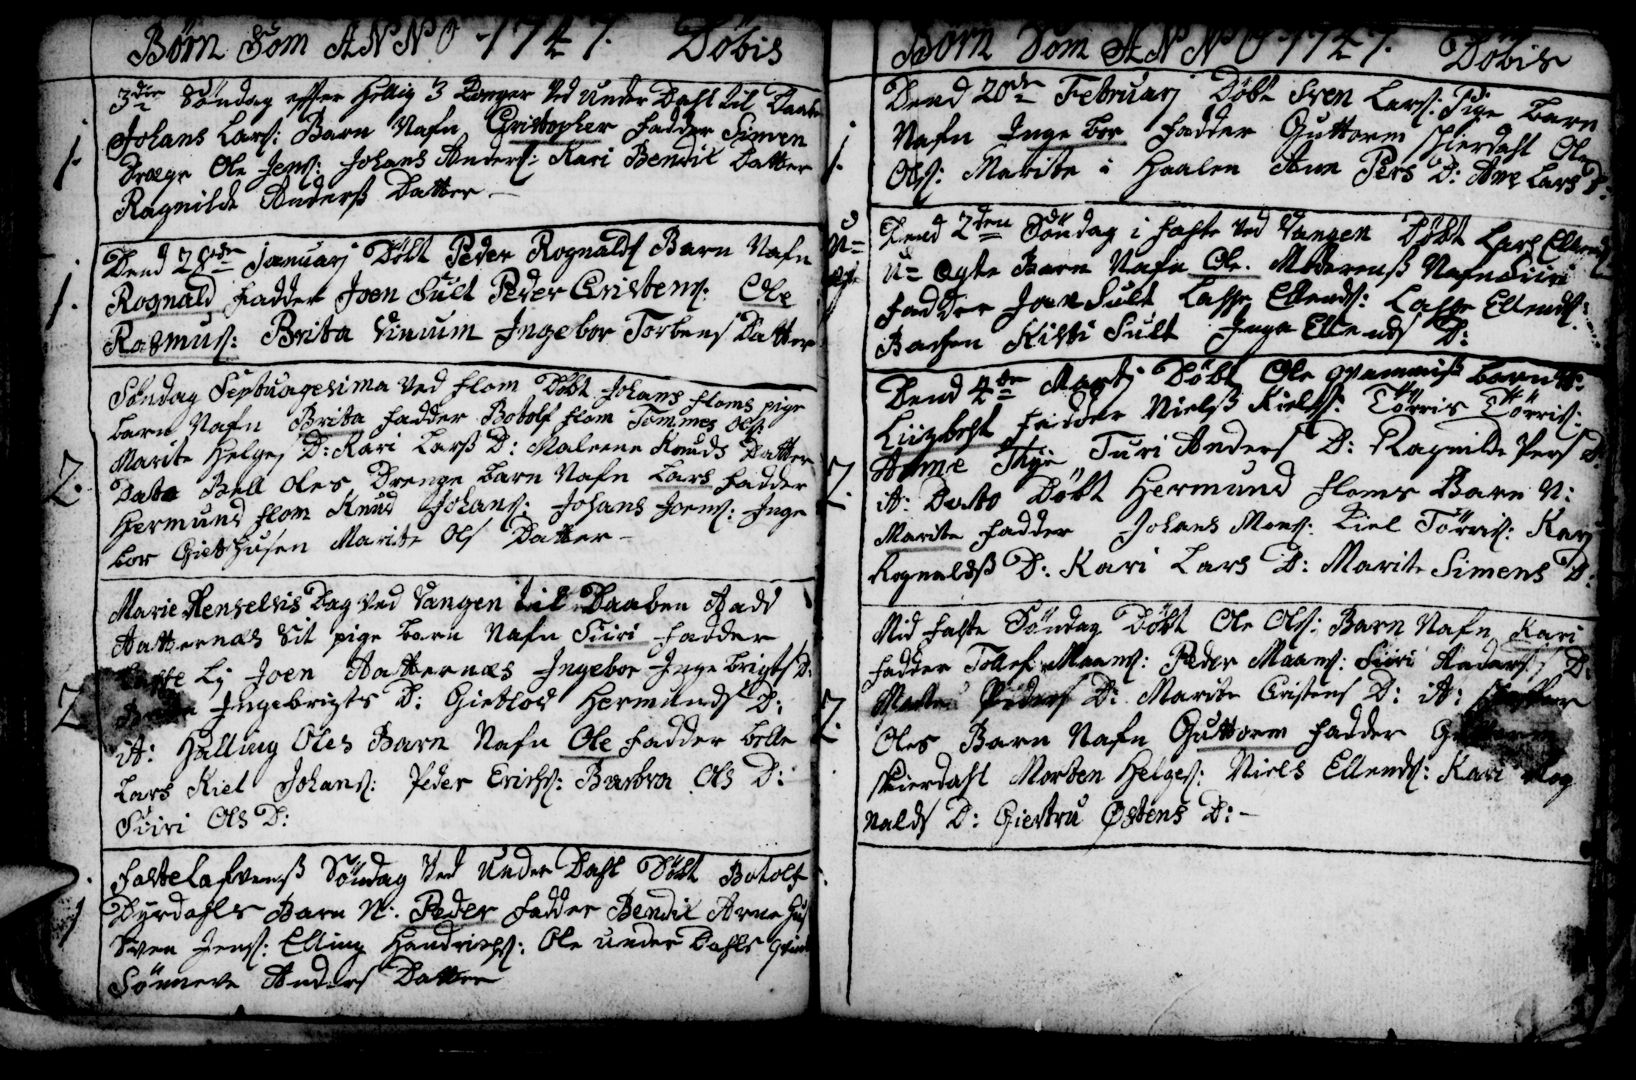 Børn Som ANNO 1747. Døbis
3die Søndag efter Hellig 3 Konger ved Under Dahl til Daaben
1. Johans Lars: Barn Nafn Christopher Fadder Simen
Drægr Ole Jens: Johans Anders: Kari Bendix Datter
Ragnilde Anderß Datter
Dend 28de Januarj Døbt Peder Rognalds Barn Nafn
1. Rognald Fadder Joen Fult Peder Christens: Ole
Rasmus: Brita Vinium Ingebor Torbens Datter
Søndag Septuagesima ved Flom Døbt Johans Floms pige
barn Nafn Brita Fadder Botolf Flom Tommes Ols:
Marite Helges D: Kari Larß D: Maleene Knuds Datter
2. Dato Bell Oles Drenge barn Nafn Lars Fadder
Hermund Flom Knud Johans: Johans Joens: Inge
bor Gietshusen Marite Ols Datter
Marie Renselsis Dag ved Vangen til Daaben Aadd
Aatternæs Sit pige barn Nafn Siiri Fadder
Lj Joen Aatternæs Ingebor Ingebrigts D:
2 Ingebrigts D: Gietlod Hermunds D:
it: Halling Oles Barn Nafn Ole Fadder belle
Lars Kiel Johans: Peder Erichs: Barbra Ols D:
Siiri Ols D:
Fastelafvenß Søndag ved Under Dahl Døbt Botolf
1 Dyrdahls Barn N: Peder Fadder Bendix Arne
Sven Jens: Elling Hendrichs: Ole under Dahls
Sønneve Anders Datter
Børn Som ANNO 1747. Døbis
Dend 20de Februarj Døbt Sven Lars: Pige barn
1. Nafn Ingebor Fadder Guttorm Skierdahl Ole
Ols: Marite i Haalen Ane Pers D: Ane Lars D:
Dend 2den Søndag i Faste ved Vangen Døbt Lars Ellends
U= U= Ægte Barn Nafn Ole. Moderenß Nafn Siiri
Fadder Joen Fult Lasse Ellends: Lasse Ellends:
Kisti Fult Inga Ellends D:
Dend 4de Martj Døbt Ole barn N:
Liizbeht Fadder Nielß Kiels: Tørris Tørris:
Turi Anders D: Ragnilde Pers D:
2. it: Dato Døbt Hermund Floms Barn N:
Marite Fadder Johans Mons: Kiel Tørris: Kari
Rognaldß D: Kari Lars D: Marite Simens D:
Mid Faste Søndag Døbt Ole Ols: Barn Nafn Kari
Fadder Tollef Maans: Peder Maans: Siiri Anders D:
Peders D: Marite Cristens D: it:
2. Oles Barn Nafn Guttorm Fadder
Skierdahl Morten Helges: Niels Ellends: Kari Rog
nalds D: Giertru Østens D: